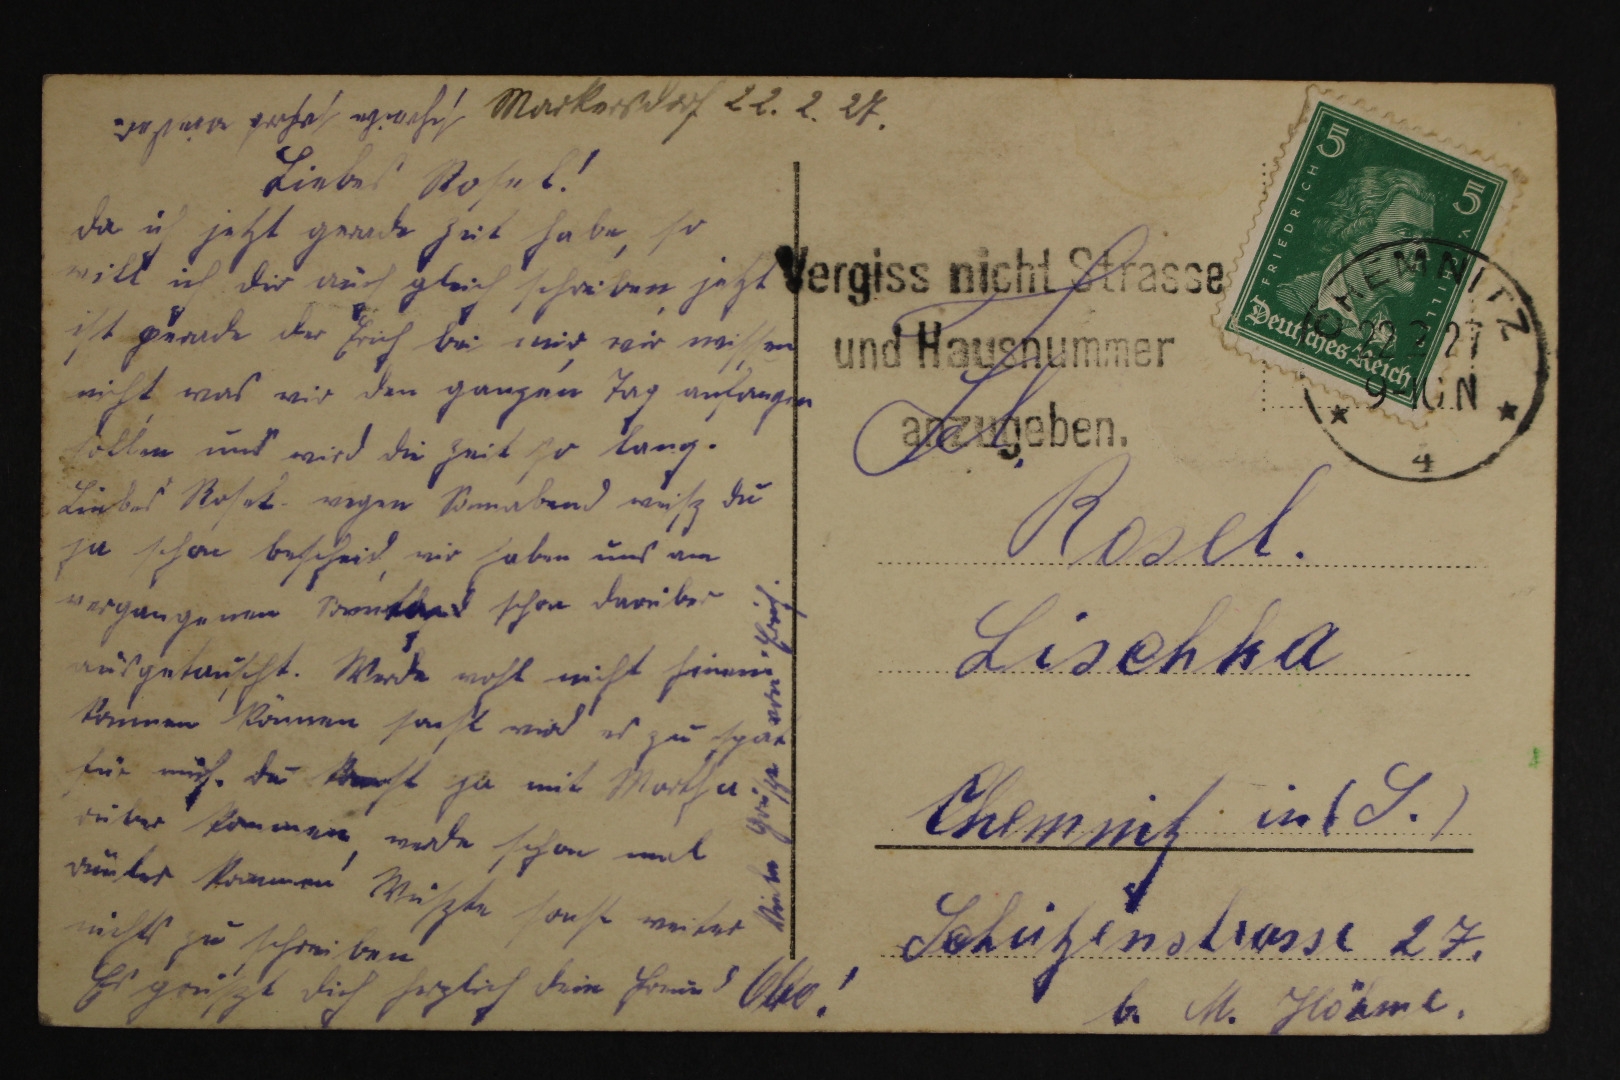 Markersdorf 22. 2. 27.
Liebes Rosel!
da ich jetzt gerade Zeit habe, so
will ich dir auch gleich schreiben, jetzt
ist gerade der Erich bei mir, wir wissen
nicht was wir den ganzen Tag anfangen
sollen uns wird die Zeit so lang.
Liebes Rosel wegen Sonnabend weißt du
ja schon bescheid, wir haben uns am
vergangenen schon darüber
ausgetauscht. Werde wohl nicht hinein
kommen können sonst wird es zu spät
für mich. du kannst ja mit Martha
rüber kommen, werde schon mal
runter kommen Wüßte sonst weiter
nichts zu schreiben
Es grüßt dich herzlich dein Freund Otto!
Viele Grüße von Erich
Vergiss nicht Strasse
und Hausnummer
anzugeben.
5
5
FRIEDRICH V. SCHILLER
Deutsches Reich
CHEMNITZ
22 2 27
9-10 N
4
Frl.
Rosel.
Lischka
Chemnitz in (S.)
Schützenstrasse 27.
b. M. Höhme.